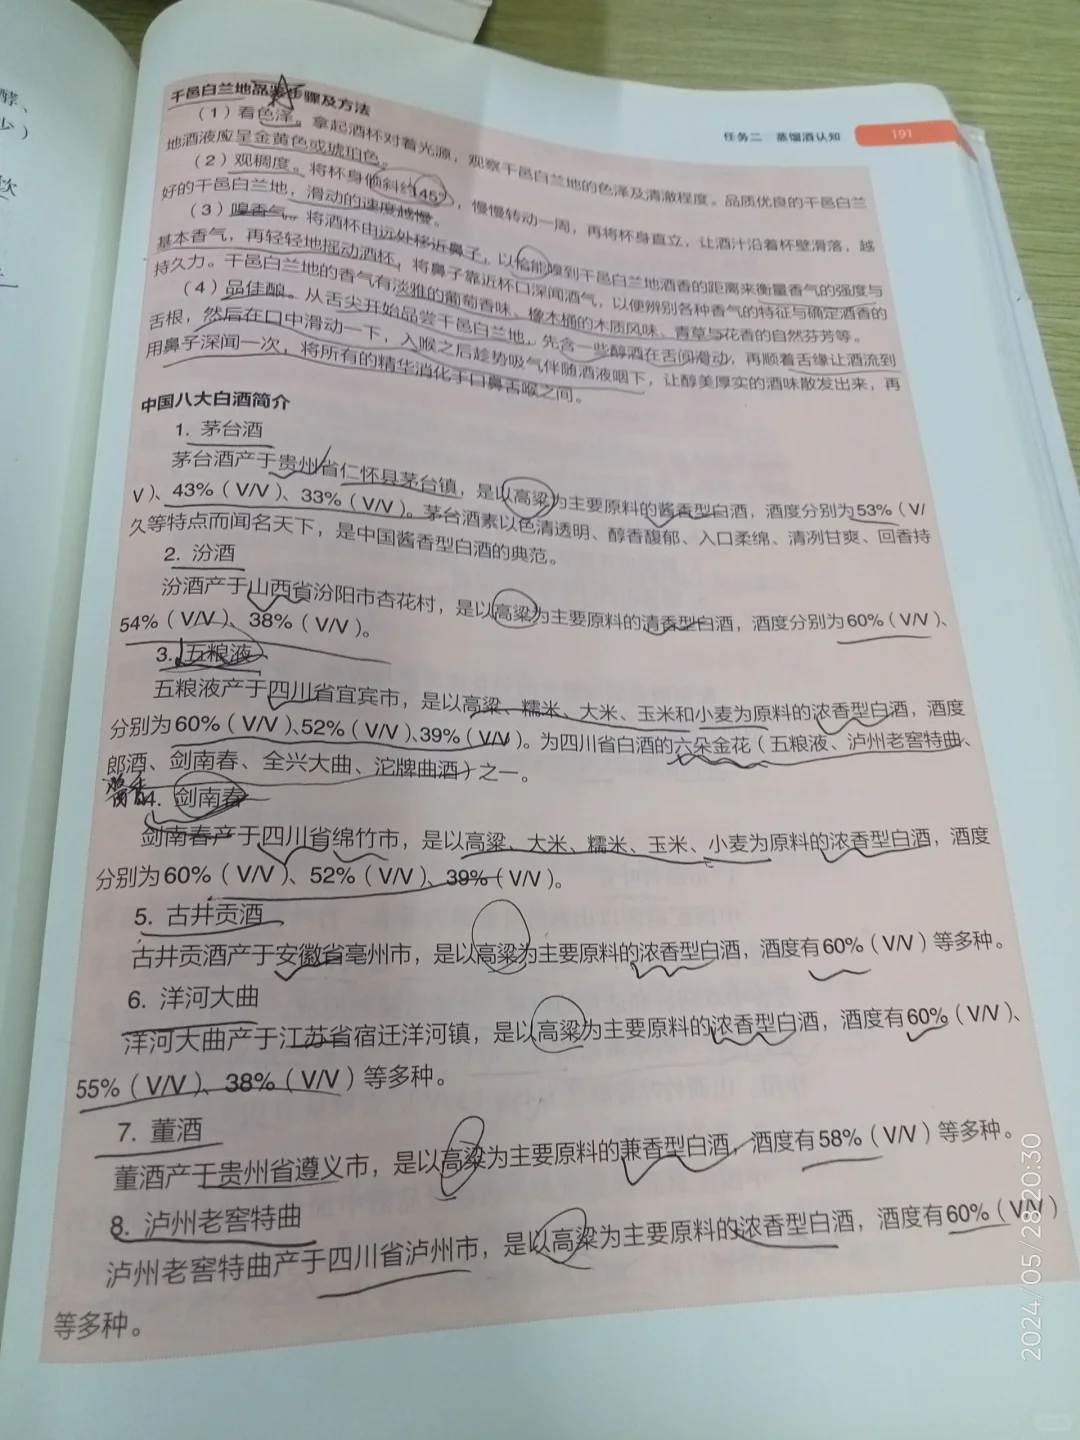 酵、
少）
饮
任务二 蒸馏酒认知 191
干邑白兰地品鉴步骤及方法
（1）看色泽。拿起酒杯对着光源，观察干邑白兰地的色泽及清澈程度。品质优良的干邑白兰
地酒液应呈金黄色或琥珀色。
（2）观稠度。将杯身倾斜约45°，慢慢转动一周，再将杯身直立，让酒汁沿着杯壁滑落，越
好的干邑白兰地，滑动的速度越慢。
（3）嗅香气。将酒杯由远处移近鼻子，以恰能嗅到干邑白兰地酒香的距离来衡量香气的强度与
基本香气，再轻轻地摇动酒杯，将鼻子靠近杯口深闻酒气，以便辨别各种香气的特征与确定酒香的
持久力。干邑白兰地的香气有淡雅的葡萄香味、橡木桶的木质风味、青草与花香的自然芬芳等。
（4）品佳酿。从舌尖开始品尝干邑白兰地，先含一些醇酒在舌间滑动，再顺着舌缘让酒流到
舌根，然后在口中滑动一下，入喉之后趁势吸气伴随酒液咽下，让醇美厚实的酒味散发出来，再
用鼻子深闻一次，将所有的精华消化于口鼻舌喉之间。
中国八大白酒简介
1. 茅台酒
茅台酒产于贵州省仁怀县茅台镇，是以高粱为主要原料的酱香型白酒，酒度分别为53%（V/
V）、43%（V/V）、33%（V/V）。茅台酒素以色清透明、醇香馥郁、入口柔绵、清冽甘爽、回香持
久等特点而闻名天下，是中国酱香型白酒的典范。
2. 汾酒
汾酒产于山西省汾阳市杏花村，是以高粱为主要原料的清香型白酒，酒度分别为60%（V/V）、
54%（V/V）、38%（V/V）。
3. 五粮液
五粮液产于四川省宜宾市，是以高粱、糯米、大米、玉米和小麦为原料的浓香型白酒，酒度
分别为60%（V/V）、52%（V/V）、39%（V/V）。为四川省白酒的六朵金花（五粮液、泸州老窖特曲、
郎酒、剑南春、全兴大曲、沱牌曲酒）之一。
酱香
4. 剑南春
剑南春产于四川省绵竹市，是以高粱、大米、糯米、玉米、小麦为原料的浓香型白酒，酒度
分别为60%（V/V）、52%（V/V）、39%（V/V）。
5. 古井贡酒
古井贡酒产于安徽省亳州市，是以高粱为主要原料的浓香型白酒，酒度有60%（V/V）等多种。
6. 洋河大曲
洋河大曲产于江苏省宿迁洋河镇，是以高粱为主要原料的浓香型白酒，酒度有60%（V/V）、
55%（V/V）、38%（V/V）等多种。
7. 董酒
董酒产于贵州省遵义市，是以高粱为主要原料的兼香型白酒，酒度有58%（V/V）等多种。
8. 泸州老窖特曲
泸州老窖特曲产于四川省泸州市，是以高粱为主要原料的浓香型白酒，酒度有60%（V/V）
等多种。
2024/05/28 20:30